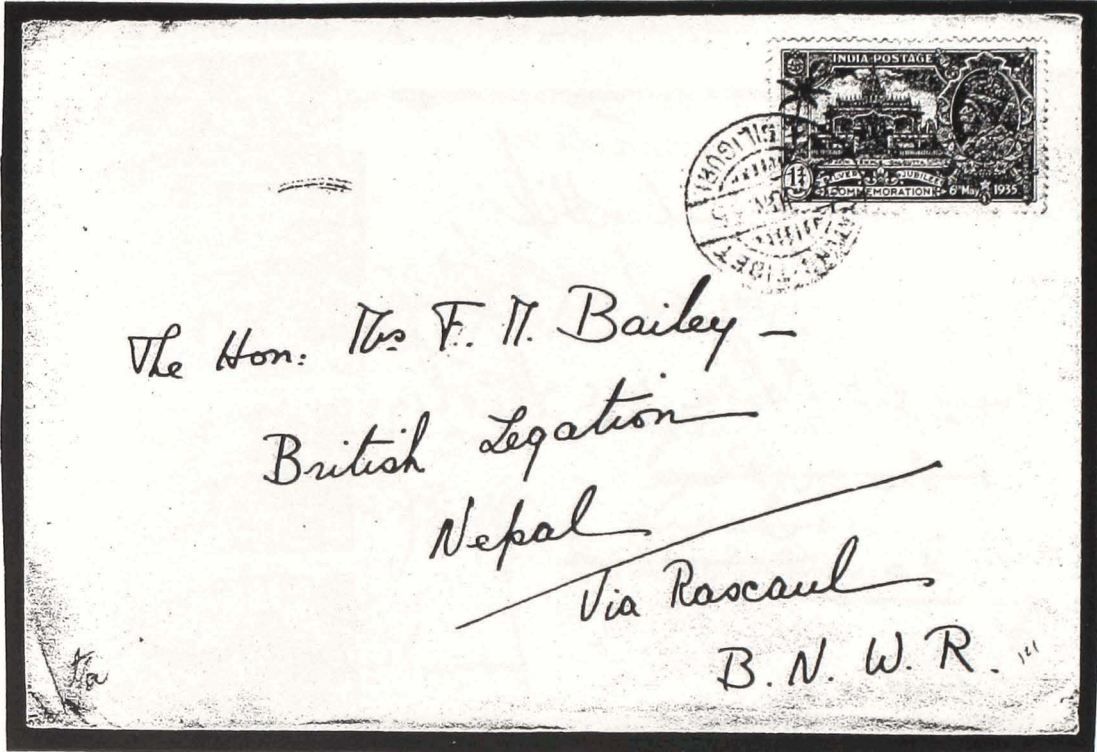 INDIA POSTAGE
1¼
SILVER JUBILEE
COMMEMORATION
6 May 1935
SILIGURI
TIBET
The Hon: Mrs F. M. Bailey –
British Legation
Nepal
Via Raxcaul
B. N. W. R.